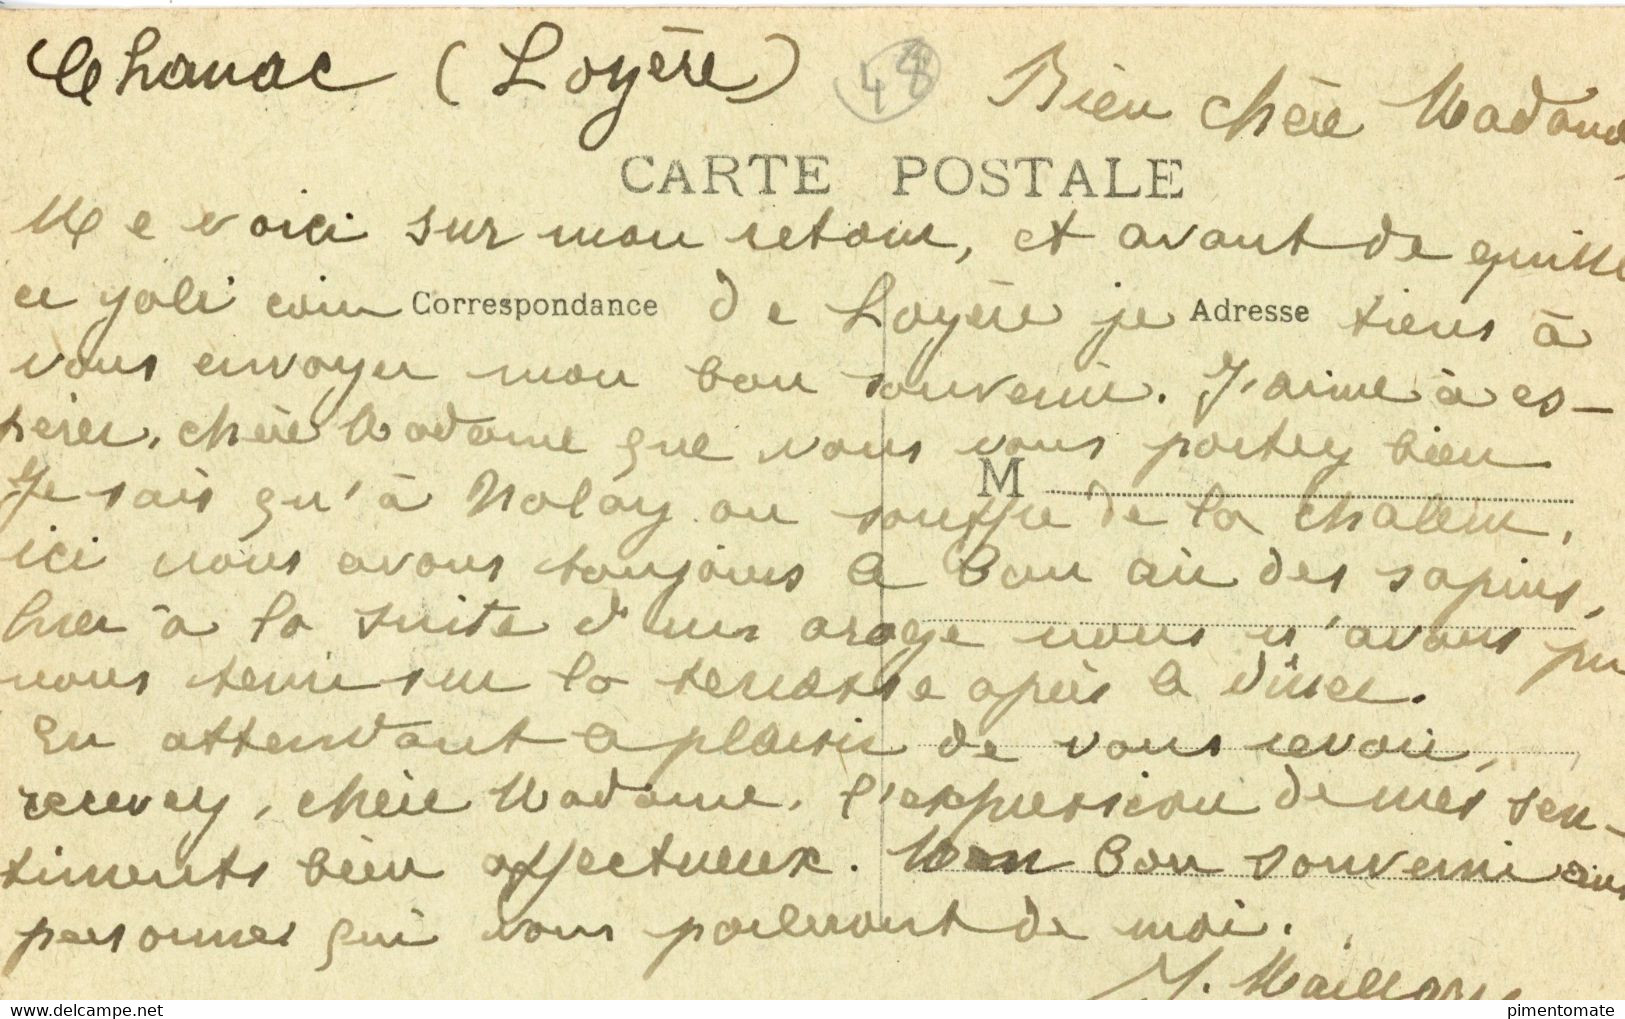 Chanac (Loyère) 48 Bien chère Madame,
CARTE POSTALE
Me voici sur mon retour, et avant de quitter
ce joli coin Correspondance de Loyère je Adresse tiens à
vous envoyer mon bon souvenir. J'aime à es-
pérer, chère Madame que vous vous portez bien
M
Je sais qu'à Nolay on souffre de la chaleur,
ici nous avons toujours le bon air des sapins,
hier à la suite d'un orage nous n'avons pu
nous tenir sur la terrasse après le dîner.
En attendant le plaisir de vous revoir,
recevez, chère Madame, l'expression de mes sen-
timents bien affectueux. Mon bon souvenir aux
personnes qui vous parleront de moi.
delcampe.net
pimentomate